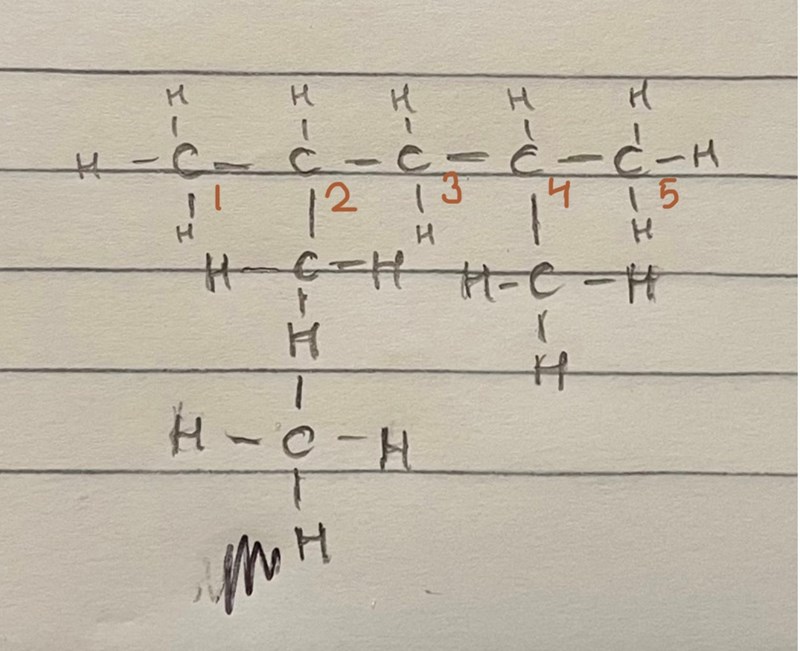 H H H H H
H - C - C - C - C - C - H
1 2 3 4 5
H H H
H - C - H H - C - H
H H
H - C - H
H